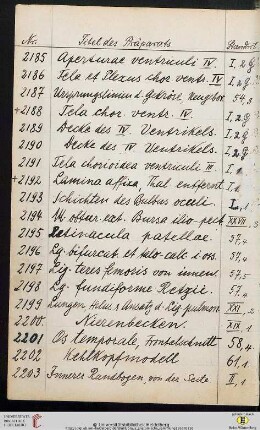 Nr. Titel des Präparats Standort
2185 Aperturae ventriculi IV. I, 2 g
2186 Tela et Plexus chor. ventr. IV I, 2 g
2187 Ursprungslinie d. Gekröse Neugbor. 54, 3
+2188 Tela chor. ventr. IV. I, 2 g
2189 Decke des IV. Ventrikels. I, 2 g
2190 Decke des IV. Ventrikels. I, 2 g
2191 Tela chorioidea ventriculi III. I, 1
+2192 Lamina affixa, Thal. entfernt I,
2193 Schichten des Bulbus oculi. I,
2194 M. obtur. ext. Bursa ilio pect. XXVII
2195 Retinacula patellae. 57, 4
2196 Lg. bifurcat. et talo calc. i oss. 57, 4
2197 Lig. teres femoris von innen. 57, 5
2198 Lg. fundiforme Retzii. 57, 4
2199 Lungen Hilus & Ansatz d. Lig. pulmon. XXI, 2
2200. Nierenbecken. XIX, 1
2201 Os temporale, Frontalschnitt 58, 4
2202 Kehlkopfmodell 61, 1
2203 Innerer Randbogen von der Seite II, 1
UNIVERSITÄTS-
BIBLIOTHEK
HEIDELBERG
© Universitätsbibliothek Heidelberg